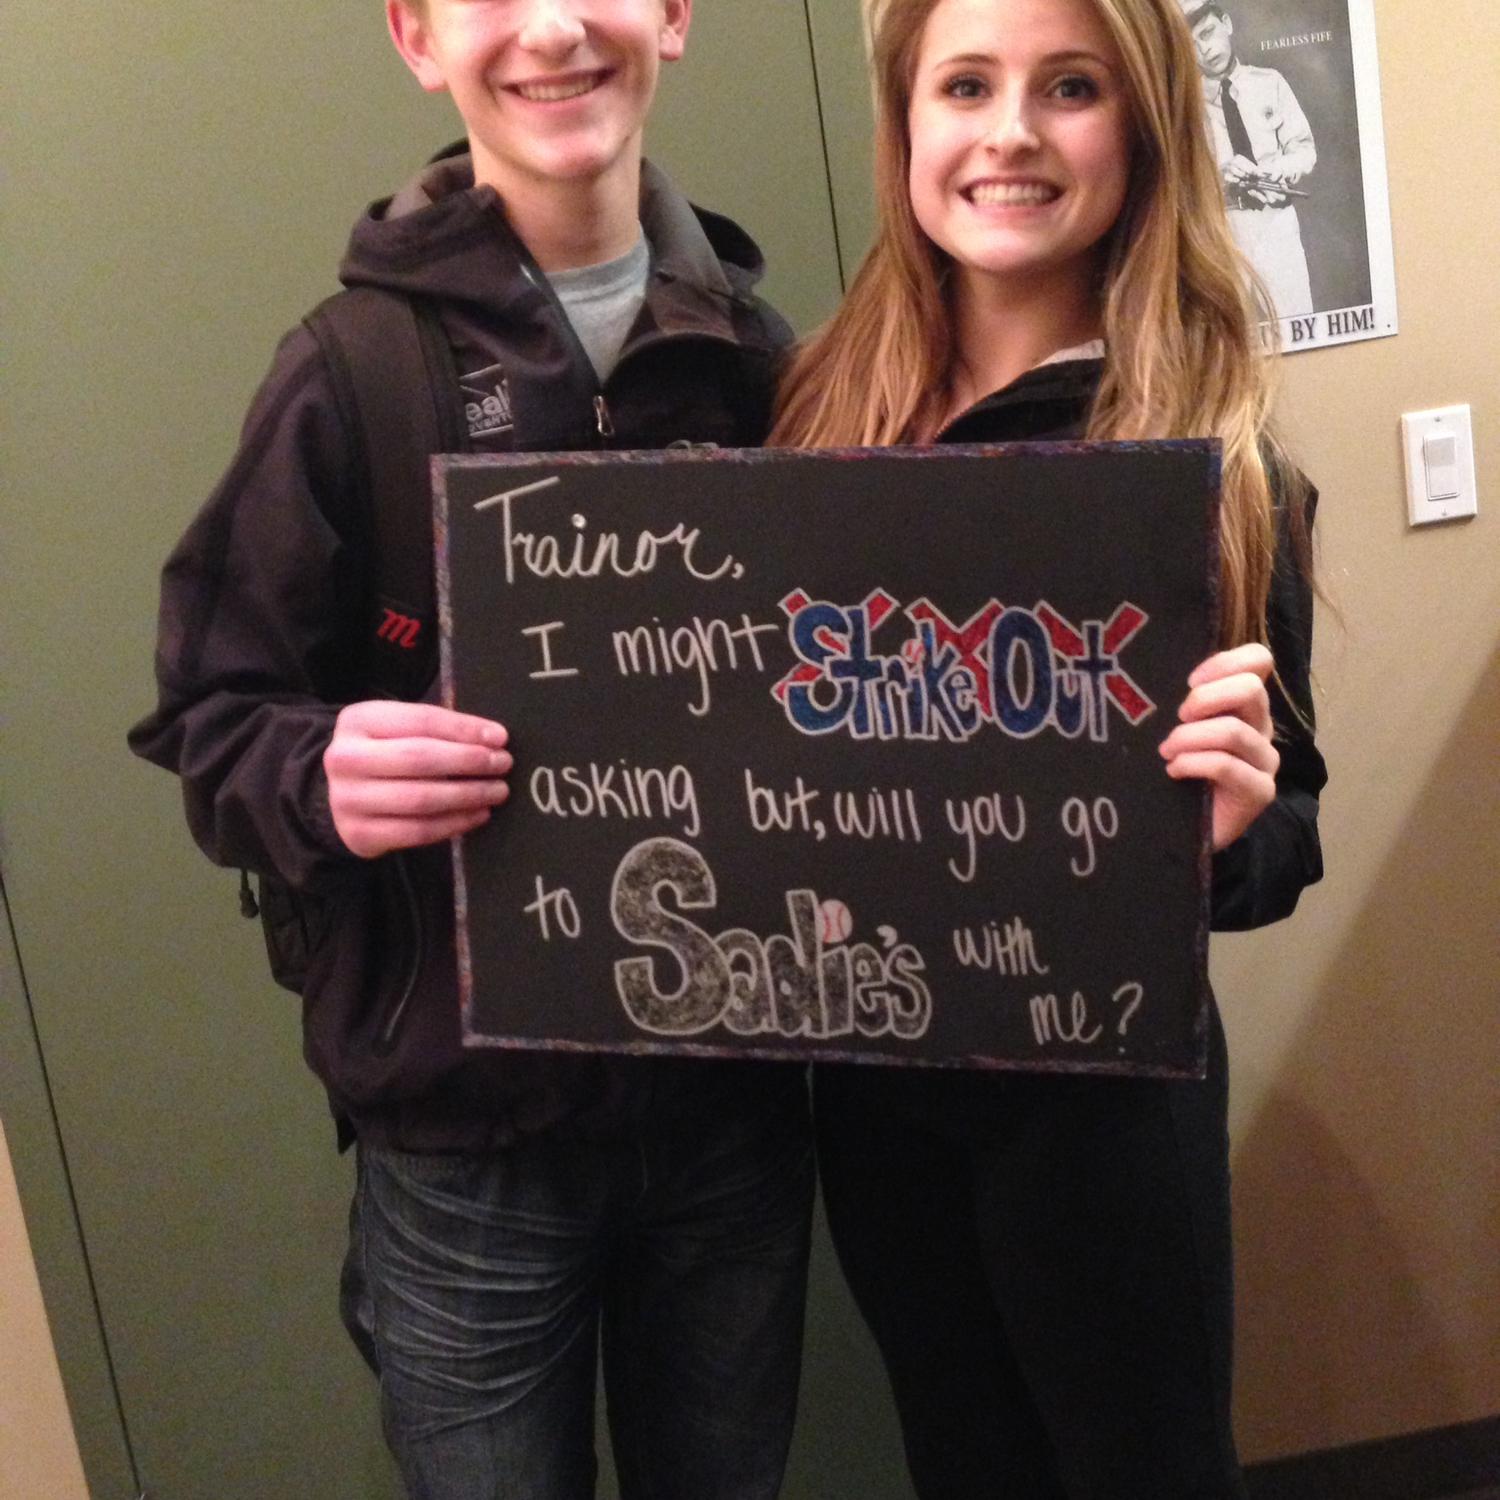 FEARLESS FIFE
BY HIM!
m
Trainor,
I might Strike Out
asking but, will you go
to Sadie's with
me?